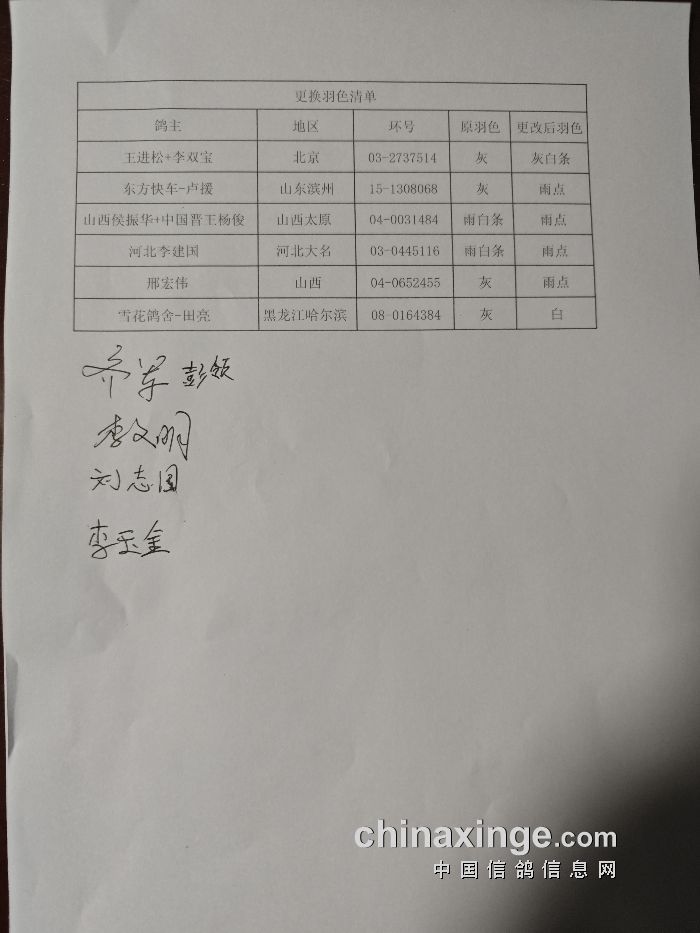 更换羽色清单
鸽主 地区 环号 原羽色 更改后羽色
王进松+李双宝 北京 03-2737514 灰 灰白条
东方快车-卢援 山东滨州 15-1308068 灰 雨点
山西侯振华+中国晋王杨俊 山西太原 04-0031484 雨白条 雨点
河北李建国 河北大名 03-0445116 雨白条 雨点
邢宏伟 山西 04-0652455 灰 雨点
雪花鸽舍-田亮 黑龙江哈尔滨 08-0164384 灰 白
齐军 彭领
李文明
刘志国
李玉金
chinaxinge.com
中国信鸽信息网